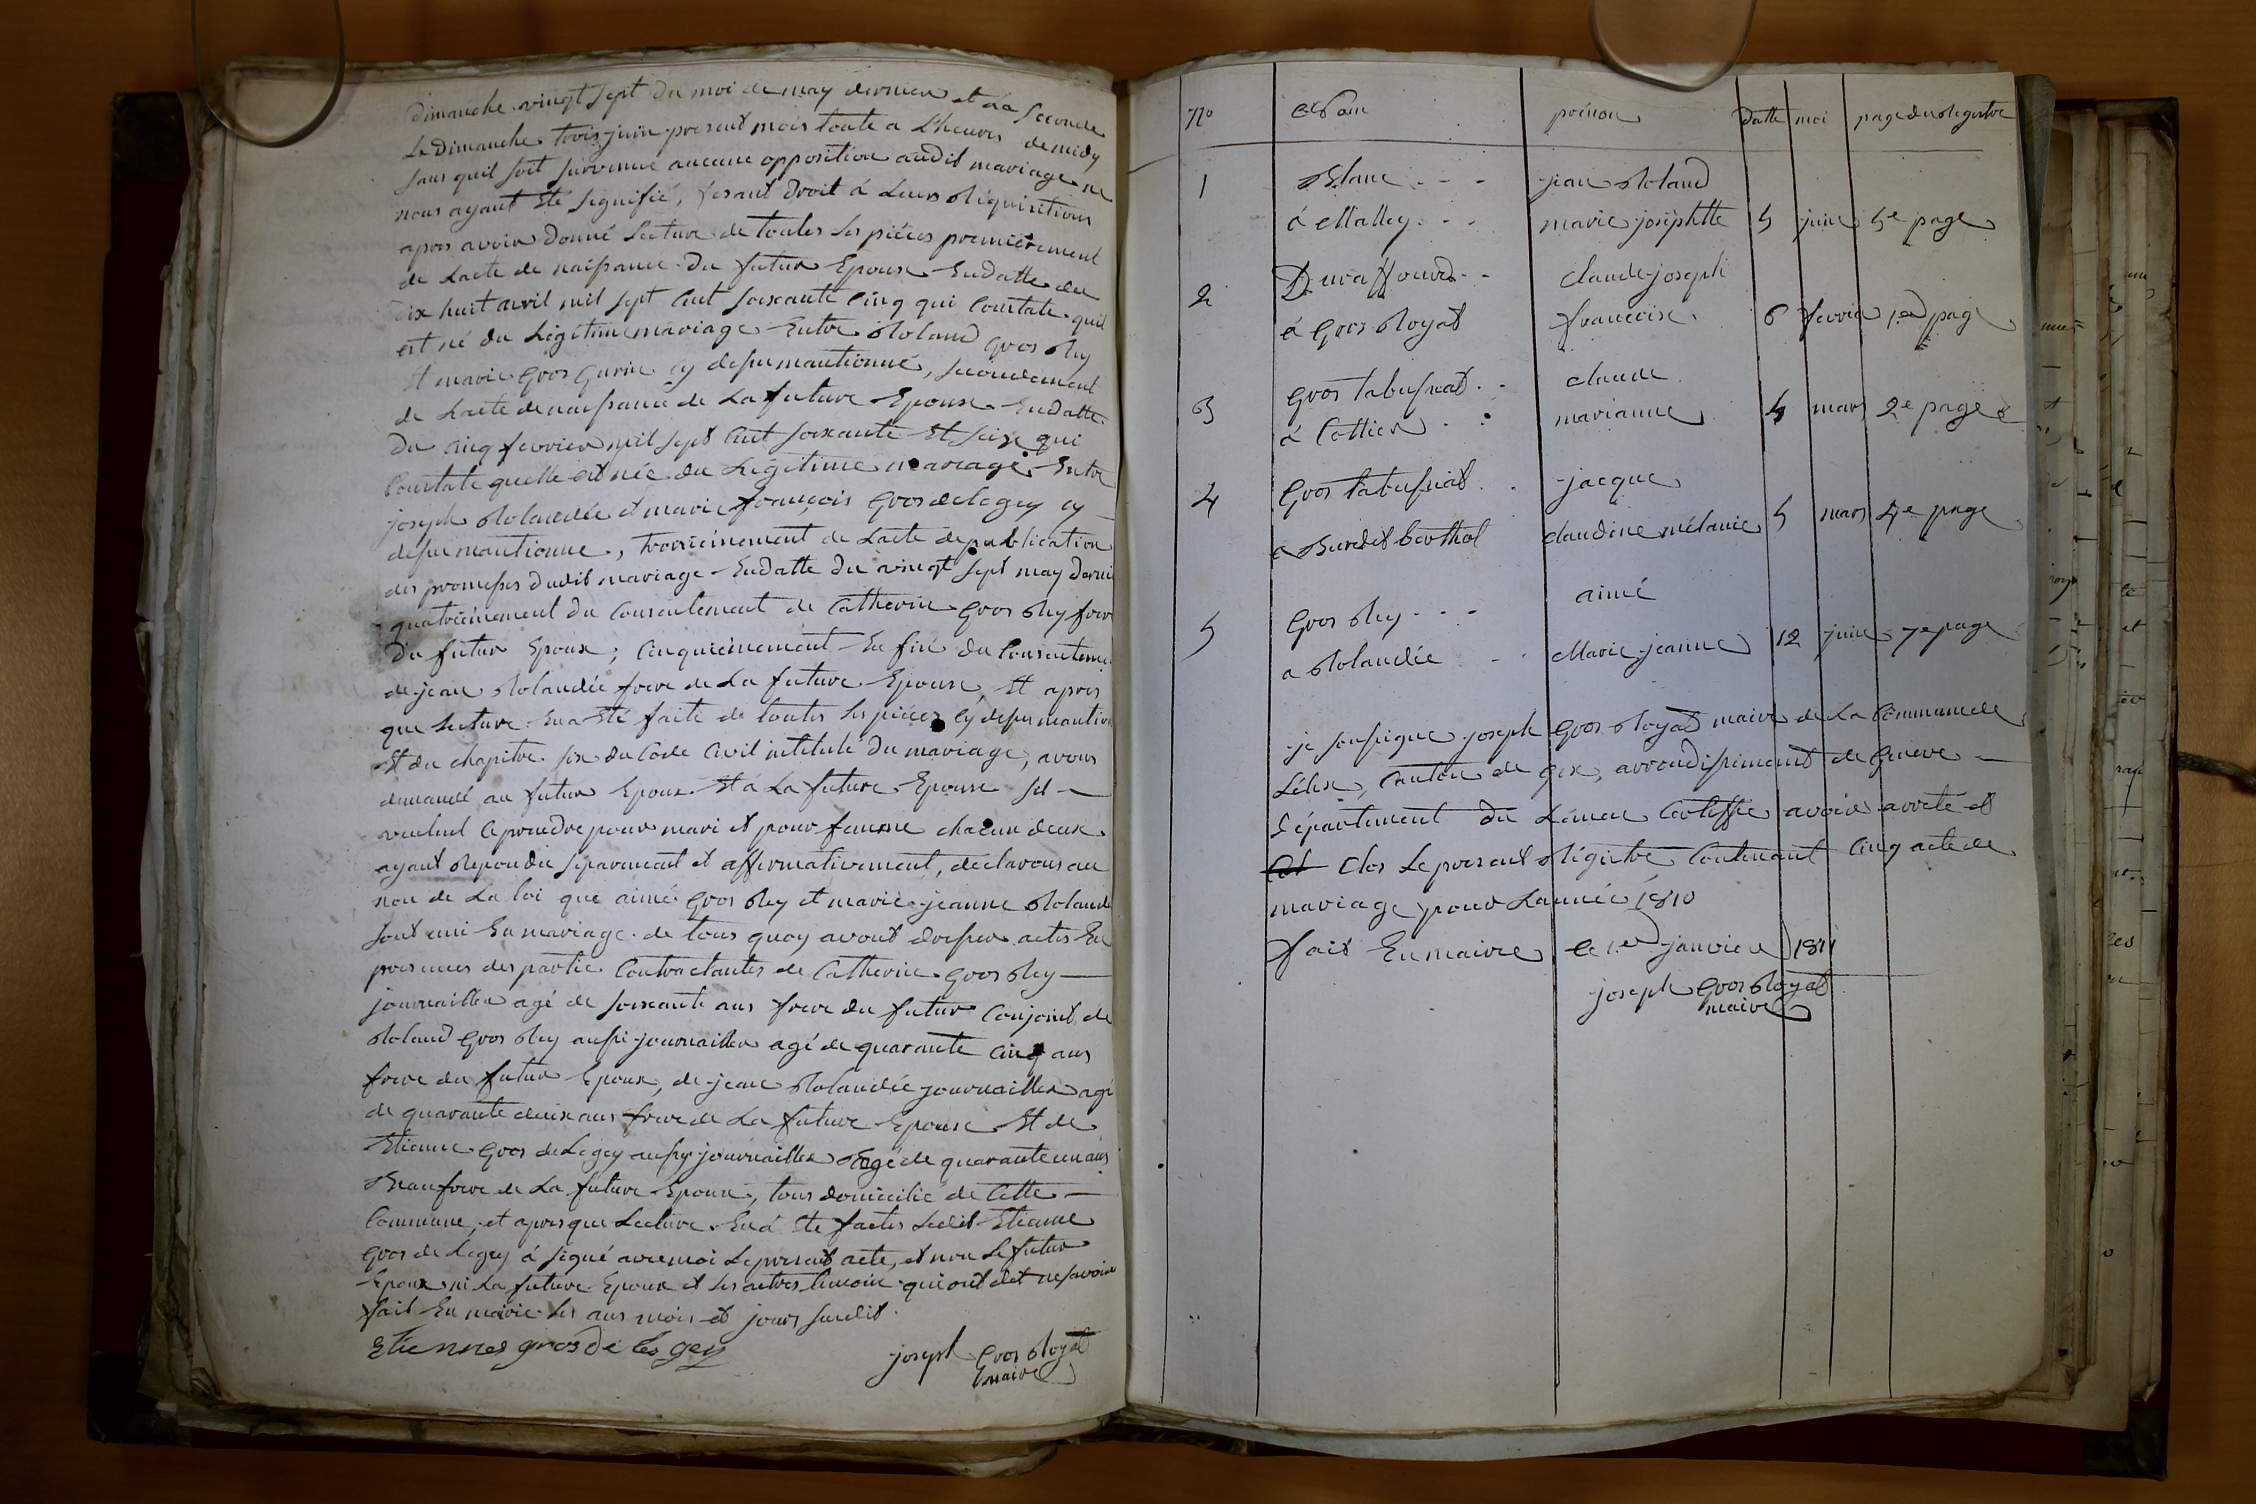 dimanche vingt sept du moi de may dernier et la seconde
le dimanche trois juin present mois toute a Lheures de midy
sans quil soit survenue aucune opposition audit mariage ne
nous ayant été signifié, fesant droit á Leurs réquisitions
apres avoir donné Lecture de toutes les piéces premiérement
de Lacte de naissance du futur Epoux En datte du
dix huit avril mil sept Cent soixante Cinq qui Constate quil
est né du Légitime mariage Entre Roland gros Rey
Et marie gros gurin cy dessu mantionné, secondement
de Lacte de naissance de La future Epouse En datte
du cinq fevrier mil sept Cent soixante Et seize qui
Constate quelle est née du Légitime mariage Entre
joseph Rolandée et marie françois gros de le gey cy
dessu mantionne, troisiémement de Lacte de publication
des promesses dudit mariage En datte du vingt sept may dernier
quatriémement du Consentement de Catherin gros Rey frere
du futur Epoux; Cinquiémement En fin du Consentement
de jean Rolandée frere de La future Epouse, Et apres
que Lecture En a Eté faite de toutes les piéces cy dessu mantion
Et du chapitre six du Code Civil intitulé du mariage, avons
demandé au futur Epoux Et á La future Epouse sil
veulent ce prendre pour mari et pour femme chacun deux
ayant Repondu séparement et affirmativement, declarons au
non de La loi que aimé gros Rey et marie jeanne Rolandé
sont uni En mariage de tous quoy avont dresser actes En
presences des partie Contractantes de Catherin gros Rey
journaillier agé de soixante ans frere du futur Conjoint, de
Roland gros Rey aussi journaillier agé de quarante cinq ans
frere du futur Epoux, de jean Rolandée journaillier agé
de quarante deux ans frere de La future Epouse Et de
Etienne gros de Legey aussy journaillier agé de quarante un ans
Beau frere de La future Epouse, tous domicilié de Cette
Commune, et apres que Lecture En á Eté faites Ledit Etienne
gros de Legey á signé avec moi Le present acte, et non Le futur
Epoux ni La future Epouse et les autres temoin qui ont dit ne savoir
fait En mairie les ans mois et jours susdit.
Etiennes gros de les gey
joseph gros Royat
maire
No Nom prénon datte moi page du Registre
1 Blanc - - - jean Roland
á Mattey - - - marie joséphtte 5 juin 5e page
2 Duraffourd - - claude joseph
á gros Royat françoise 6 fevrie 1er page
3 gros tabussiat - - claude
á Cottier - - marianne 4 mars 2e page
4 gros tabussiat - - jacque
a Burdet berthol claudine mélanie 5 mars 4e page
5 gros Rey - - - aimé
a Rolandée - - Marie jeanne 12 juin 7e page
je soussigne joseph gros Royat maire de La Commune de
Lélex, Canton de gex, arrondissement de geneve
département du Léman Certiffie avoir arrete et
et clos Le present régistre Contenant Cinq acte de
mariage pour Lannée 1810
fait En mairie Le 1er janvier 1811
joseph gros Royat
maire